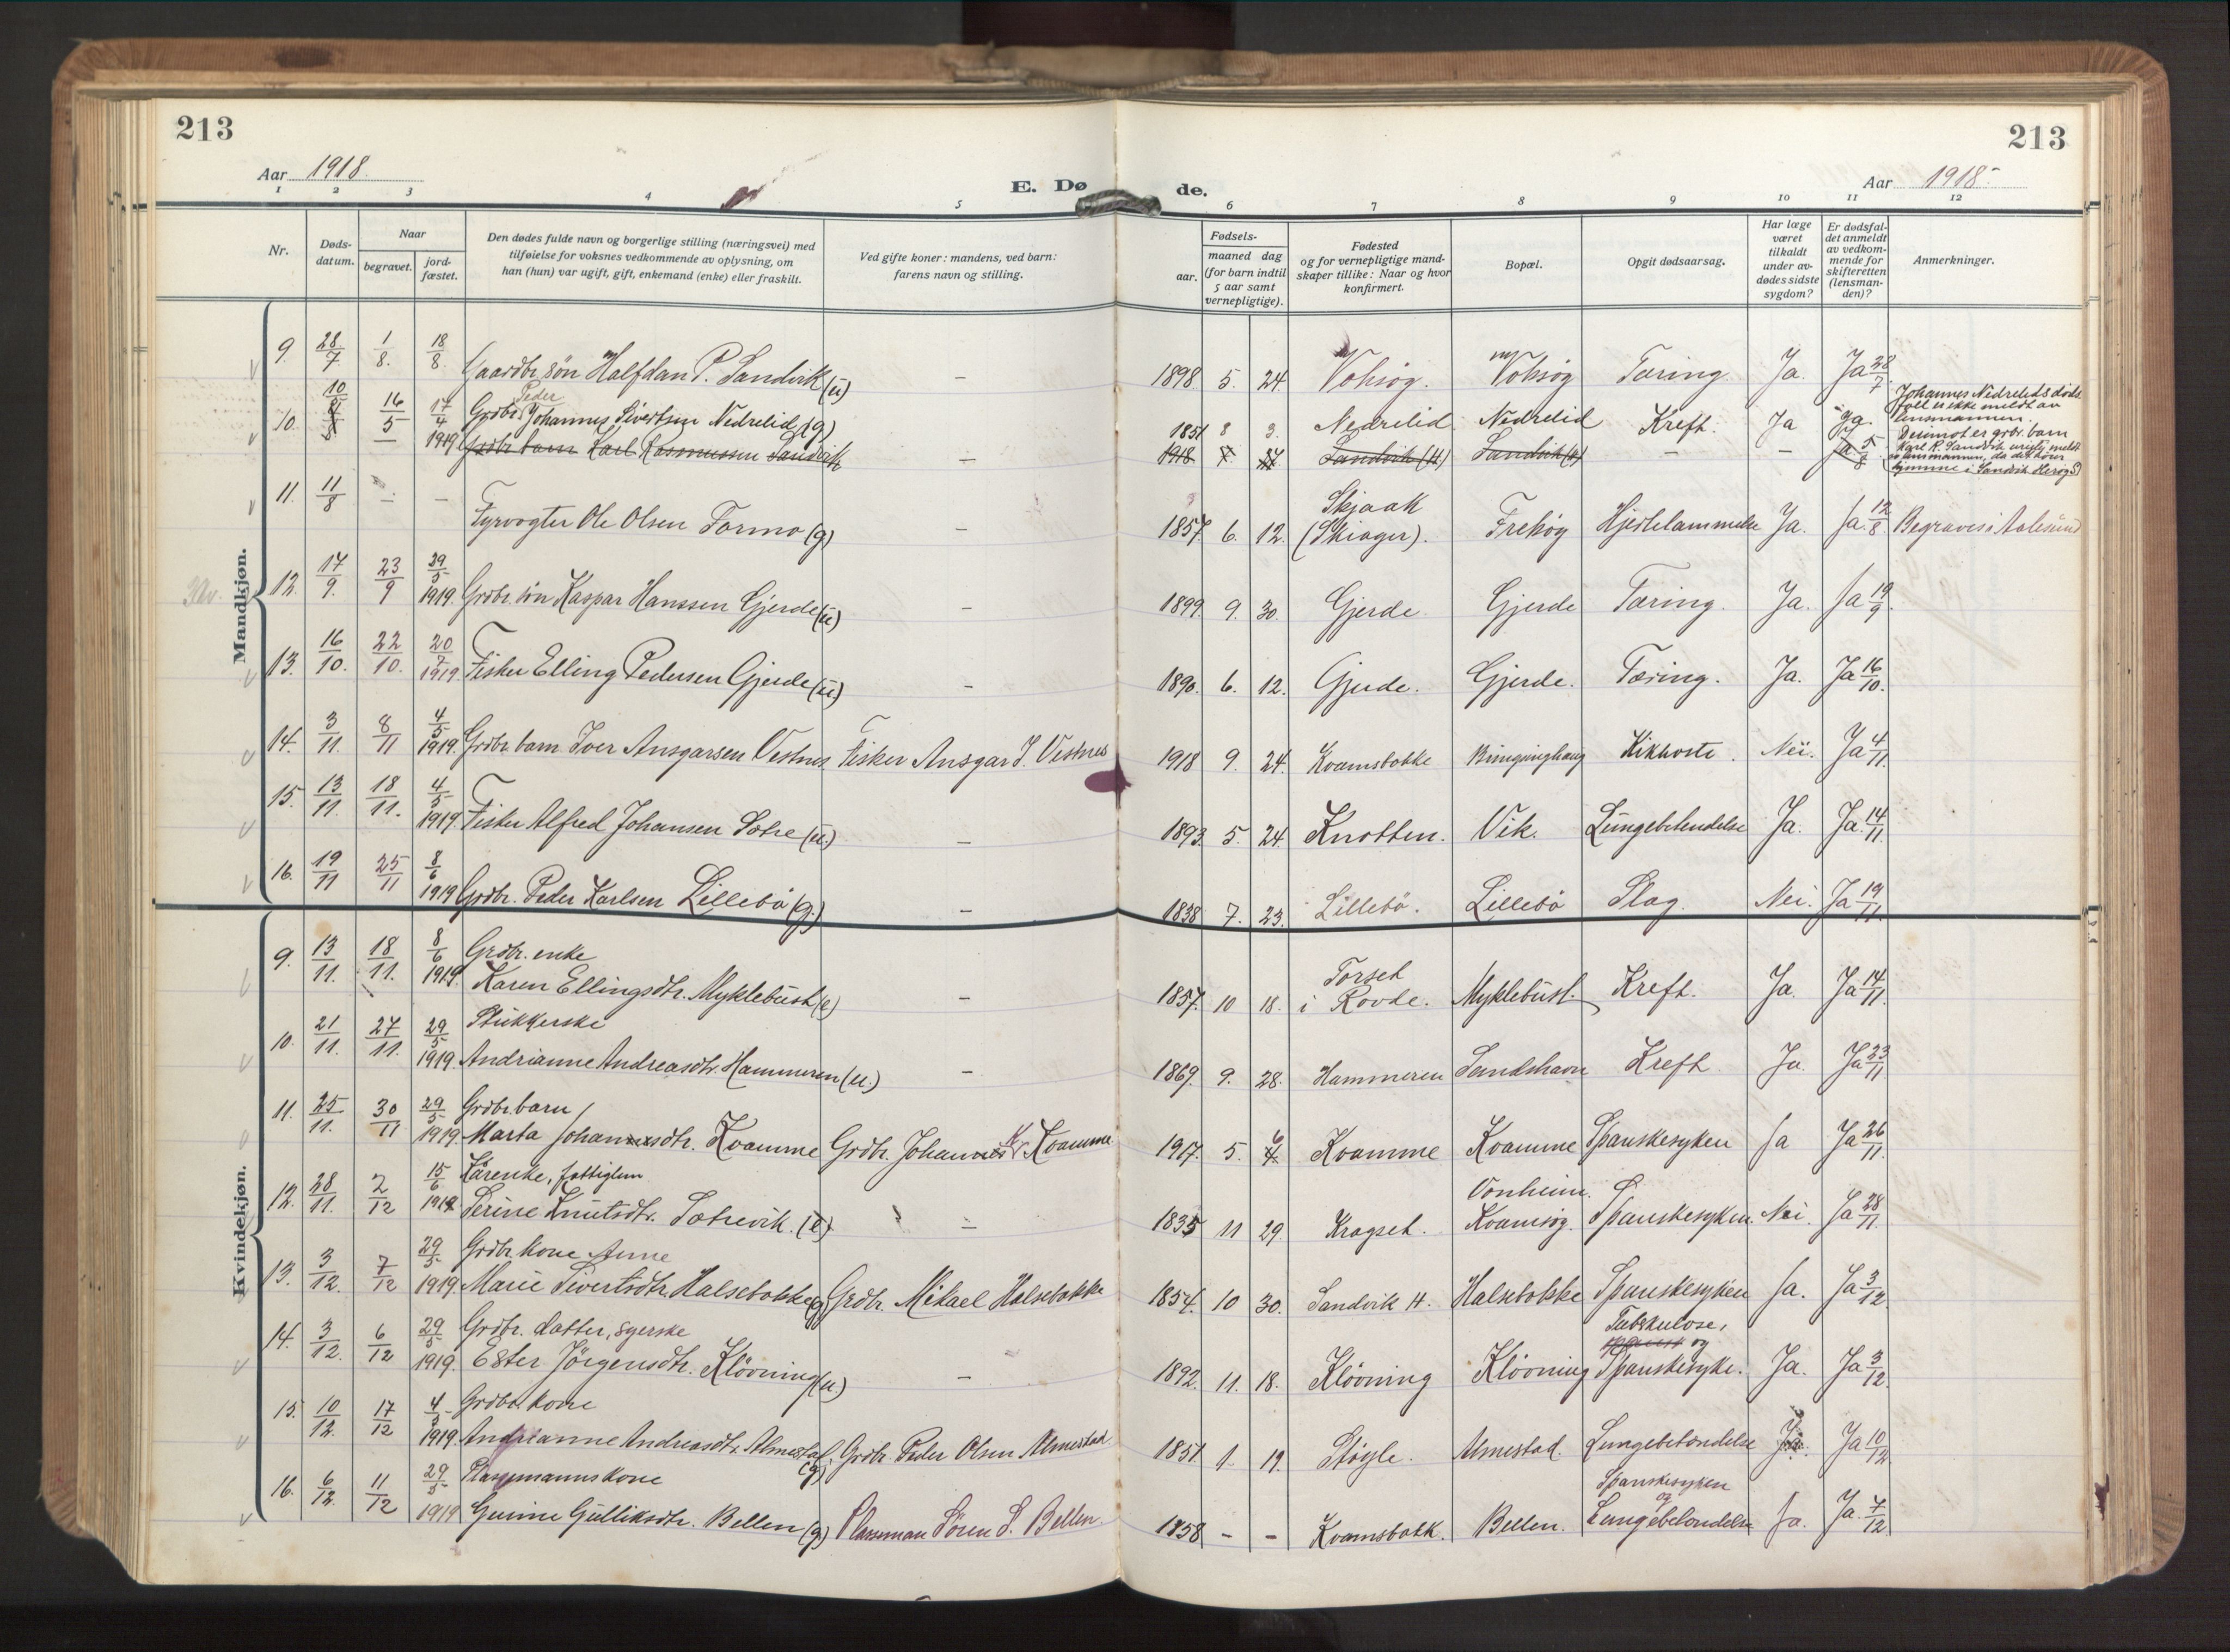 213
213
Aar 1918.
E. Døde.
Aar 1918.
1 2 3 4 5 6 7 8 9 10 11 12
Nr.
Døds-datum.
Naar
begravet.
jord-fæstet.
Den dødes fulde navn og borgerlige stilling (næringsvei) med
tilføielse for voksnes vedkommende av oplysning, om
han (hun) var ugift, gift, enkemand (enke) eller fraskilt.
Ved gifte koner: mandens, ved barn:
farens navn og stilling.
Fødsels-
aar.
maaned dag
(for barn indtil
5 aar samt
vernepligtige).
Fødested
og for vernepligtige mand-
skaper tillike: Naar og hvor
konfirmert.
Bopæl.
Opgit dødsaarsag.
Har læge
været
tilkaldt
under av-
dødes sidste
sygdom?
Er dødsfal-
det anmeldt
av vedkom-
mende for
skifteretten
(lensman-
den)?
Anmerkninger.
Mandkjøn.
9. 28/7 1/8. 18/8. Gaardbr. søn Halfdan P. Sandvik (u) – 1898 5. 24 Voksøg. Voksøg Tæring. Ja. Ja 28/7
10. 10/5 16/5 17/4 1919 Grdbr. Peder Johannes Sivertsen Nedrelid (g) 1851 8 3. Nedrelid Nedrelid Kreft. Ja Ja.
Grdbr. barn Karl Rasmussen Sandvik – 1918 Sandvik (H) Sandvik (H) – – Ja 5/8
Johannes Nedrelids døds
fall er ikke meldt av
lensmannen.
Derimot er grbr. barn
Karl R. Sandvik urigtig meldt
av lensmannen, da det hører
hjemme i Sandvik Herøy
11. 11/8 – – Fyrvogter Ole Olsen Formo (g) – 1857. 6. 12. Skjaak (Skiager). Frekøg Hjertelammelse Ja. Ja. 12/8 Begraves i Aalesund
12. 17/9. 23/9 29/5 1919. Grdbr. søn Kaspar Hanssen Gjerde (u) – 1899. 9. 30. Gjerde. Gjerde Tæring. Ja. Ja 19/9.
13. 16/10. 22/10. 20/7 1919. Fisker Elling Pedersen Gjerde (u) – 1890. 6. 12. Gjerde. Gjerde. Tæring. Ja. Ja 16/10.
14. 3/11. 8/11 4/5 1919. Grdbr. barn Iver Ansgarsen Vestnes Fisker Ansgar J. Vestnes 1918 9. 24. Kvamsbakke Kikhoste. Nei. Ja 4/11.
15. 13/11. 18/11. 4/5 1919. Fisker Alfred Johansen Sætre (u.) – 1893. 5. 24. Knotten. Vik. Lungebetendelse Ja. Ja. 14/11.
16. 19/11 25/11 8/6 1919 Grdbr. Peder Karlsen Lillebø (g.) – 1838 7. 23. Lillebø. Lillebø Slag. Nei. Ja 19/11.
Kvindekjøn.
9. 13/11. 18/11. 8/6 1919. Grdbr. enke
Karen Ellingsdtr. Myklebust (e) – 1857. 10 18. Torset i Rovde. Myklebust. Kreft. Ja. Ja 14/11.
10. 21/11. 27/11. 29/5 1919. Strikkerske
Andrianne Andreasdtr. Hammeren (u.) – 1869. 9. 28. Hammeren Sandshavn Kreft. Ja. Ja 23/11
11. 25/11. 30/11 29/5 1919. Grdbr. barn
Marta Johannesdtr. Kvamme Grdbr. Johannes K. Kvamme 1917. 5. 6 Kvamme Kvamme Spanskesyken Ja Ja 26/11.
12. 28/11. 2/12 15/6 1919 Kårenke, fattiglem
Serine Knutsdtr. Sætrevik. (e) – 1835 11 29. Kragset. Vonheim. Kvamsøg. Spanskesyken. Nei. Ja 28/11.
13. 3/12. 7/12 29/5 1919. Grdbr. kone Anne
Marie Sivertsdtr. Halsebakke (g) Grdbr. Mikael Halsebakke 1854. 10 30. Sandvik H. Halsebakke Spanskesyken Ja. Ja 3/12.
14. 3/12. 6/12 29/5 1919. Grdbr. datter, syerske
Ester Jörgensdtr. Klövning (u.) – 1892. 11. 18. Klövning Klövning Tuberkulose, og Spanskesyke. Ja. Ja 3/12.
15. 10/12. 17/12 4/5 1919. Grdbr. kone
Andrianne Andreasdtr. Almestad. (g) Grdbr. Peder Olsen Almestad. 1851. 1. 19. Støyle. Almestad. Lungebetændelse Ja. Ja 10/12
16. 6/12. 11/12 29/5 1919 Plassmannskone
Gurine Gulliksdtr. Bellen (g) Plassman Sören S. Bellen. 1858 – – Kvamsbakk. Bellen. Spanskesyken og Lungebetendelse Ja. Ja. 7/12